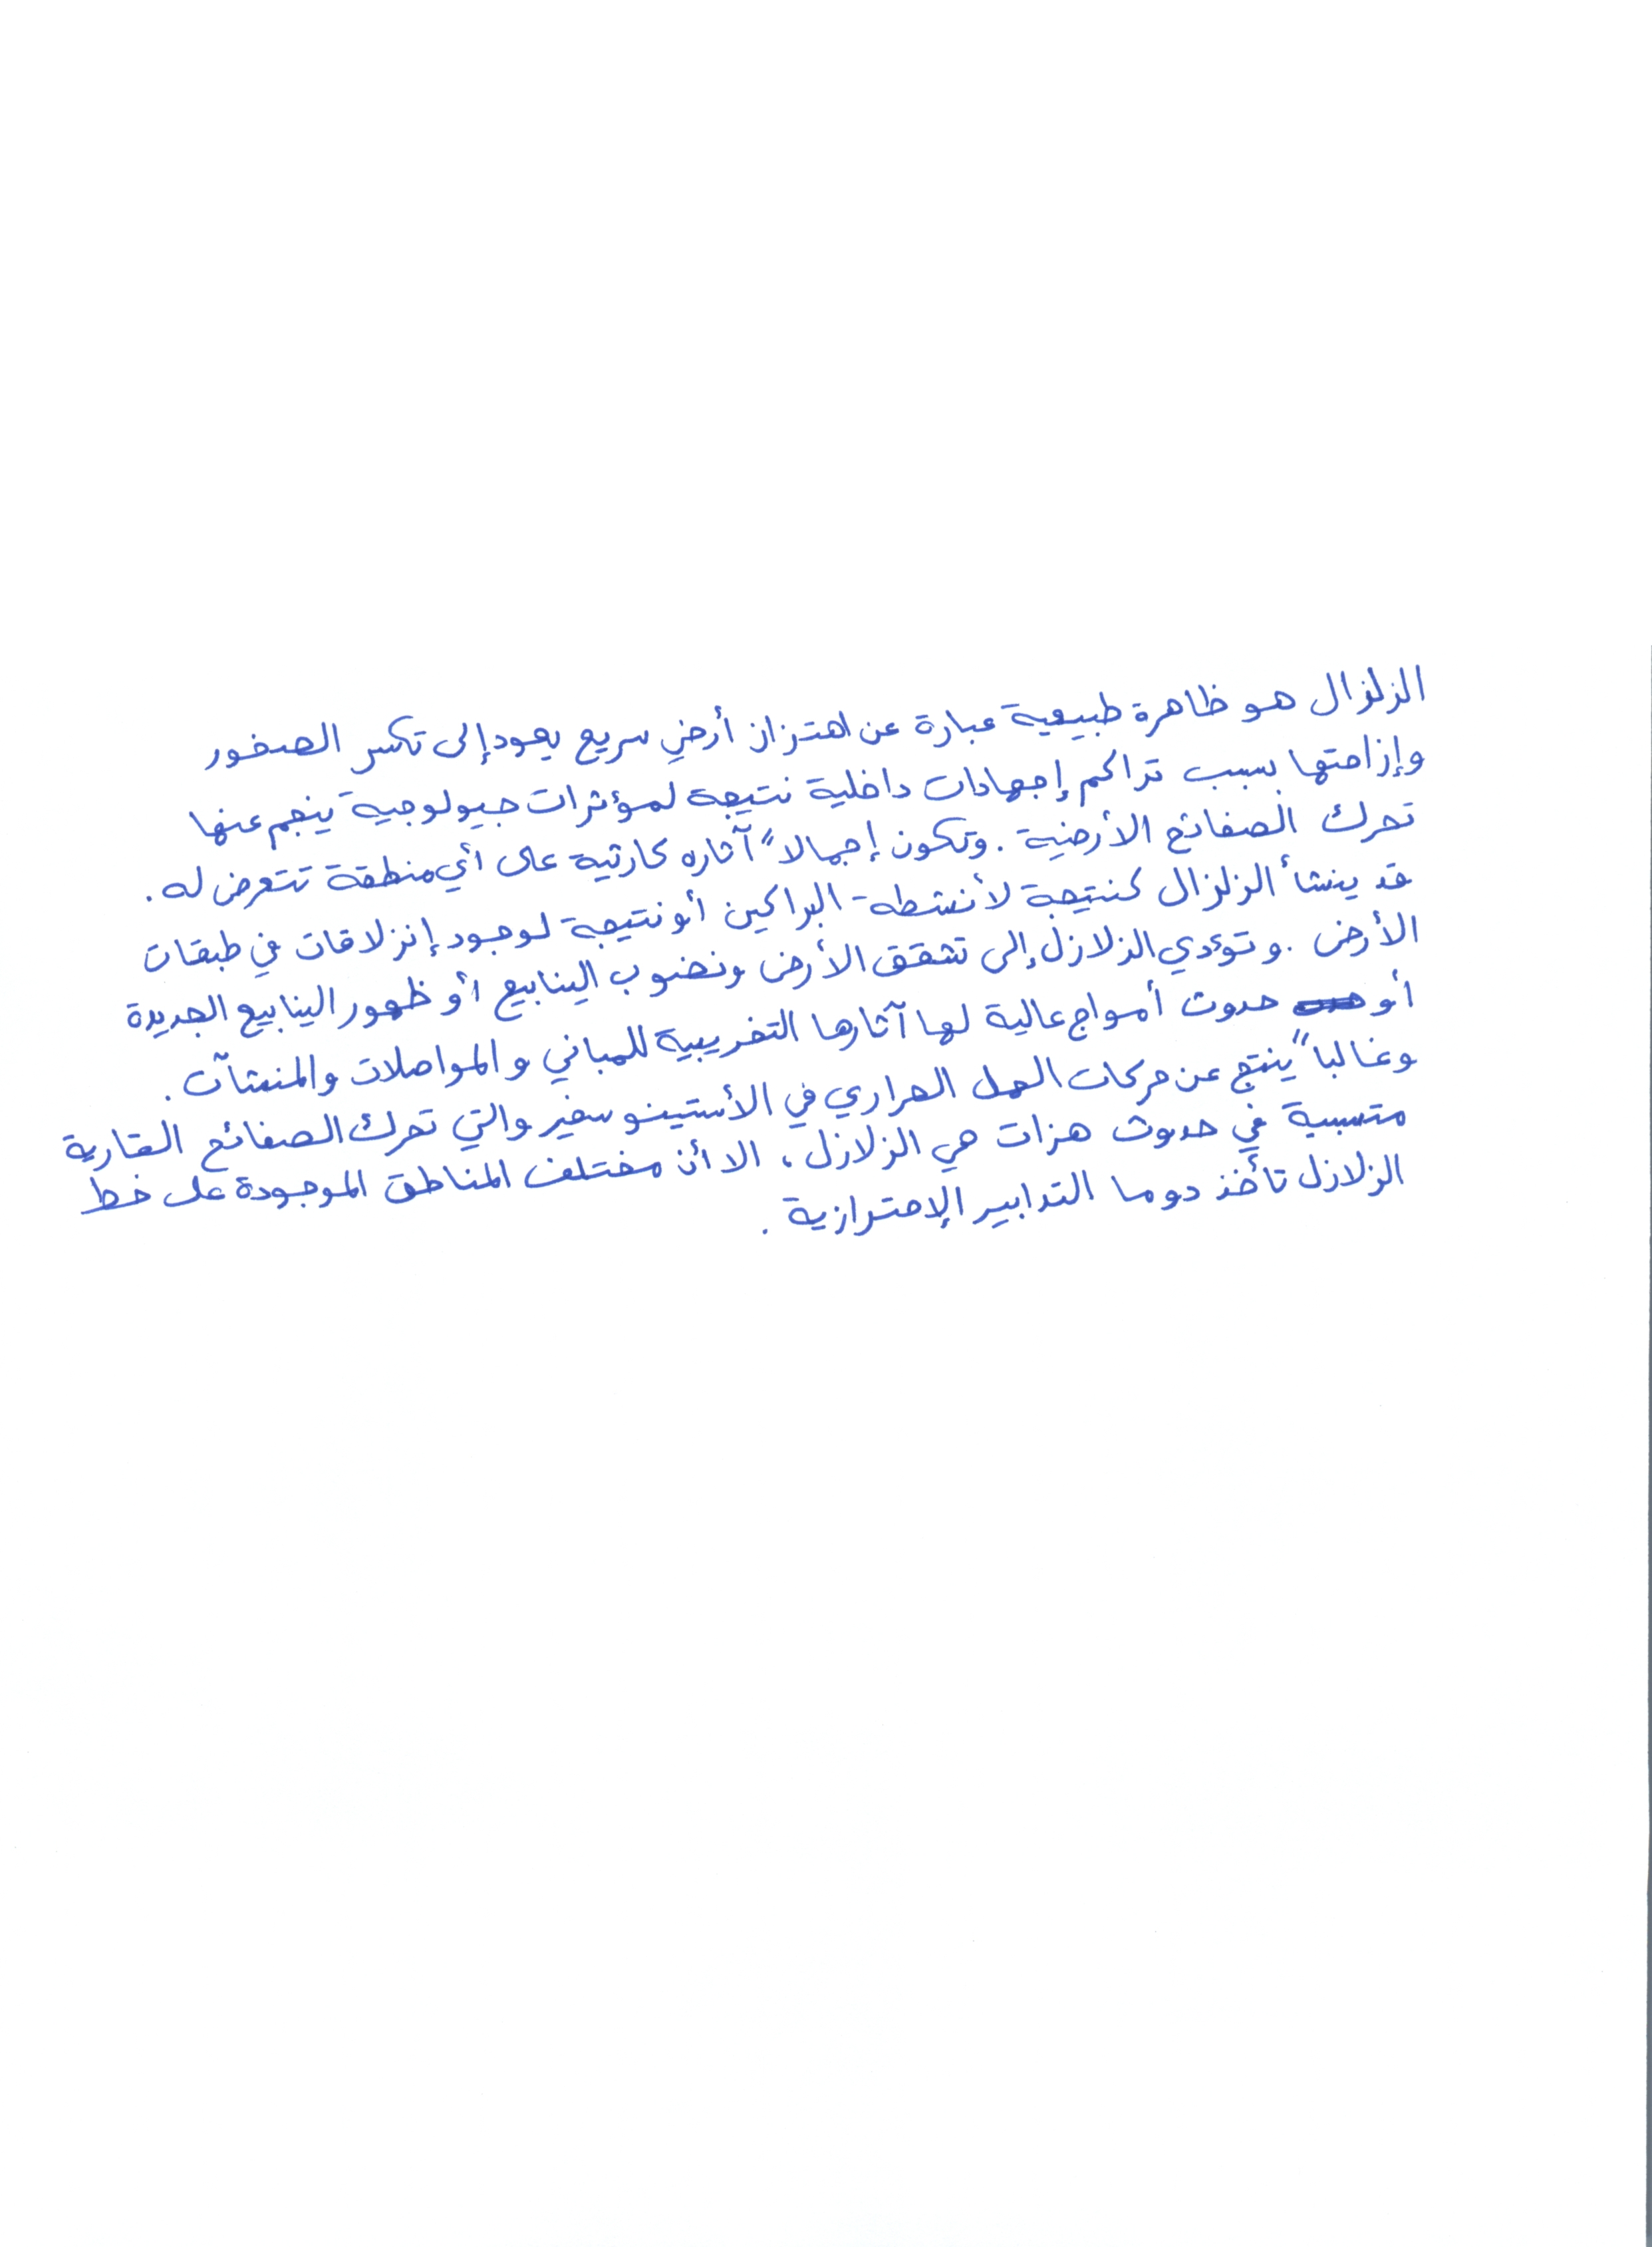 الزلزال هو ظاهرة طبيعية عبارة عن اهتزاز أرضي سريع يعود إلى تكسر الصخور
وإزاحتها بسبب تراكم إجهادات داخلية نتيجة لمؤثرات جيولوجية ينجم عنها
تحرك الصفائح الأرضية . وتكون إجمالاً آثاره كارثية على أي منطقة تتعرض له .
قد ينشأ الزلزال كنتيجة لأنشطة البراكين أو نتيجة لوجود إنزلاقات في طبقات
الأرض . وتؤدي الزلازل إلى تشقق الأرض ونضوب الينابيع أو ظهور الينابيع الجديدة
أو حدوث أمواج عالية لها آثارها التخريبية للمباني والمواصلات والمنشآت .
وغالباً ينتج عن حركات الحمل الحراري في الأستينوسفير والتي تحرك الصفائح القارية
متسببة في حدوث هزات هي الزلازل ، الا أن مختلف المناطق الموجودة على خط
الزلازل تأخذ دوما التدابير الإحترازية .